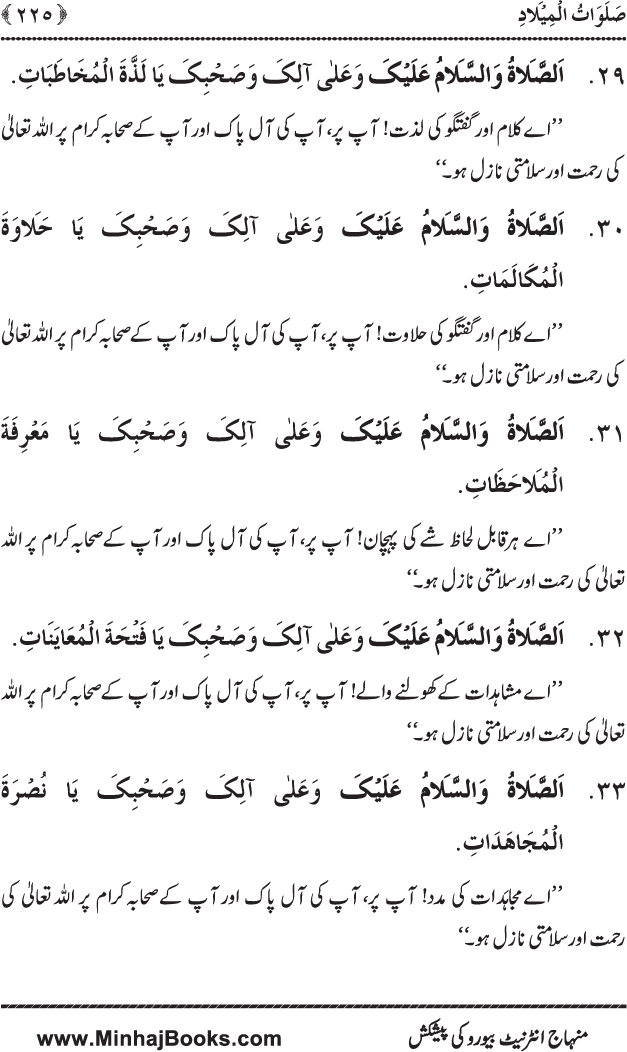 صَلَوَاتُ الْمِيْلَادِ ﴿۲۲۵﴾
۲۹. اَلصَّلَاةُ وَالسَّلَامُ عَلَيْکَ وَعَلٰی آلِکَ وَصَحْبِکَ يَا لَذَّةَ الْمُخَاطَبَاتِ.
’’اے کلام اور گفتگو کی لذت! آپ پر، آپ کی آل پاک اور آپ کے صحابہ کرام پر اللہ تعالیٰ
کی رحمت اور سلامتی نازل ہو۔‘‘
۳۰. اَلصَّلَاةُ وَالسَّلَامُ عَلَيْکَ وَعَلٰی آلِکَ وَصَحْبِکَ يَا حَلَاوَةَ
الْمُکَالَمَاتِ.
’’اے کلام اور گفتگو کی حلاوت! آپ پر، آپ کی آل پاک اور آپ کے صحابہ کرام پر اللہ تعالیٰ
کی رحمت اور سلامتی نازل ہو۔‘‘
۳۱. اَلصَّلَاةُ وَالسَّلَامُ عَلَيْکَ وَعَلٰی آلِکَ وَصَحْبِکَ يَا مَعْرِفَةَ
الْمُلَاحَظَاتِ.
’’اے ہر قابل لحاظ شے کی پہچان! آپ پر، آپ کی آل پاک اور آپ کے صحابہ کرام پر اللہ
تعالیٰ کی رحمت اور سلامتی نازل ہو۔‘‘
۳۲. اَلصَّلَاةُ وَالسَّلَامُ عَلَيْکَ وَعَلٰی آلِکَ وَصَحْبِکَ يَا فَتْحَةَ الْمُعَايَنَاتِ.
’’اے مشاہدات کے کھولنے والے! آپ پر، آپ کی آل پاک اور آپ کے صحابہ کرام پر اللہ
تعالیٰ کی رحمت اور سلامتی نازل ہو۔‘‘
۳۳. اَلصَّلَاةُ وَالسَّلَامُ عَلَيْکَ وَعَلٰی آلِکَ وَصَحْبِکَ يَا نُصْرَةَ
الْمُجَاهَدَاتِ.
’’اے مجاہَدات کی مدد! آپ پر، آپ کی آل پاک اور آپ کے صحابہ کرام پر اللہ تعالیٰ کی
رحمت اور سلامتی نازل ہو۔‘‘
منہاج انٹرنیٹ بیورو کی پیشکش www.MinhajBooks.com